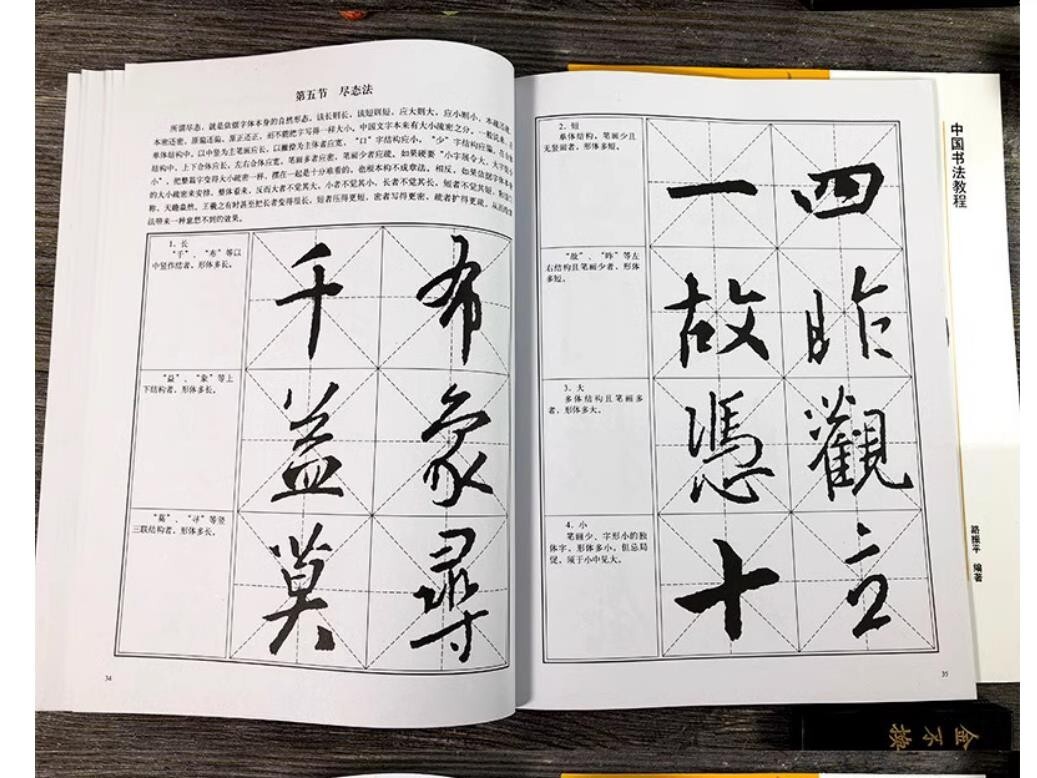 第五节 尽态法
所谓尽态，就是依据字体本身的自然形态，该长则长，该短则短，应大则大，应小则小，本疏还疏，
本密还密，原偏还偏，原正还正，而不能把字写得一样大小。中国文字本来有大小疏密之分。一般说来，在
单体结构中，以中竖为主笔画应长，以撇捺为主体者应宽，“口”字结构应小，“少”字结构应扁；在合体
结构中，上下合体应长，左右合体应宽，笔画多者应密，笔画少者应疏。如果硬要“小字展令大，大字
小”，把整篇字变得大小疏密一样，摆在一起是十分难看的，也根本构不成章法。相反，如果依据字体本身
的大小疏密来安排，整体看来，反而大者不觉其大，小者不觉其小，长者不觉其长，短者不觉其短，
称，天趣盎然。王羲之有时甚至把长者变得很长，短者压得更短，密者写得更密，疏者扩得更疏，从而给
法带来一种意想不到的效果。
1．长
“千”、“布”等以
中竖作结者，形体多长。
千 布
“益”、“象”等上
下结构者，形体多长。
益 象
“莫”、“寻”等竖
三联结构者，形体多长。
莫 尋
34
2．短
单体结构，笔画少且
无竖画者，形体多短。
一 四
“故”、“昨”等左
右结构且笔画少者，形体
多短。
故 昨
3．大
多体结构且笔画多
者，形体多大。
憑 觀
4．小
笔画少、字形小的独
体字，形体多小，但忌局
促，须于小中见大。
十 立
35
中国书法教程
路振平 编著
金不换